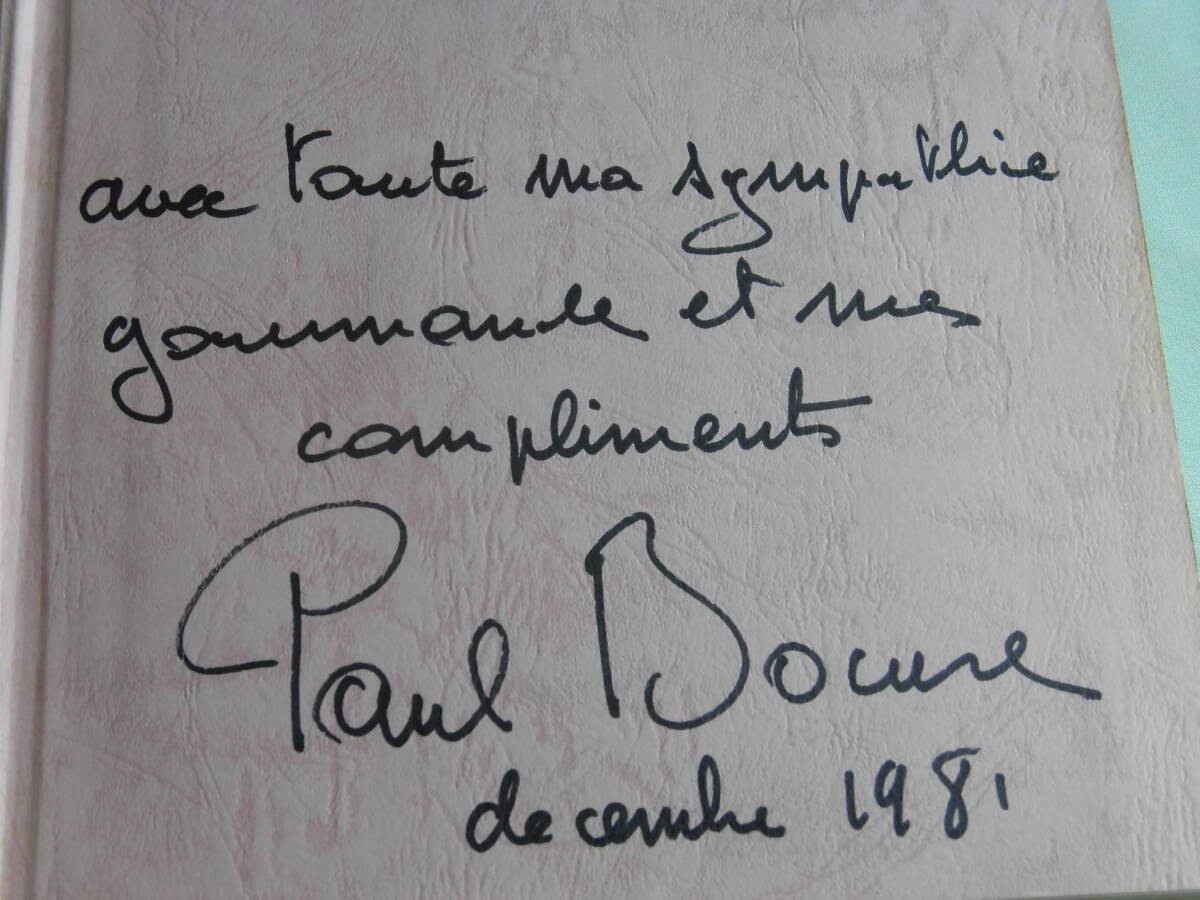 avec toute ma sympathie
gourmande et mes
compliments
Paul Bocuse
decembre 1981